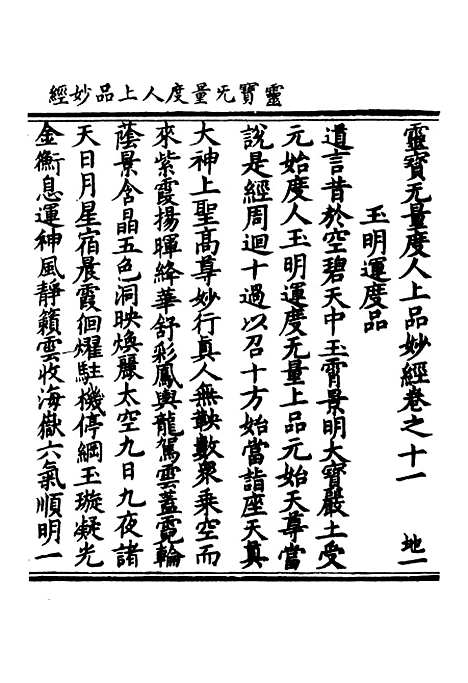 靈寶旡量度人上品妙經
靈寶无量度人上品妙經卷之十一 地一
玉明運度品
道言昔於空碧天中玉霄景明大寶嚴土受
元始度人玉明運度无量上品元始天尊當
說是經周迴十過以召十方始當詣座天真
大神上聖高尊妙行真人無鞅數衆乘空而
來紫霞揚暉絳華舒彩鳳輿龍駕雲蓋霓輪
蔭景含晶五色洞映煥麗太空九日九夜諸
天日月星宿晨霞徊燿駐機停綱玉璇凝光
金衡息運神風靜籟雲收海嶽六氣順明一